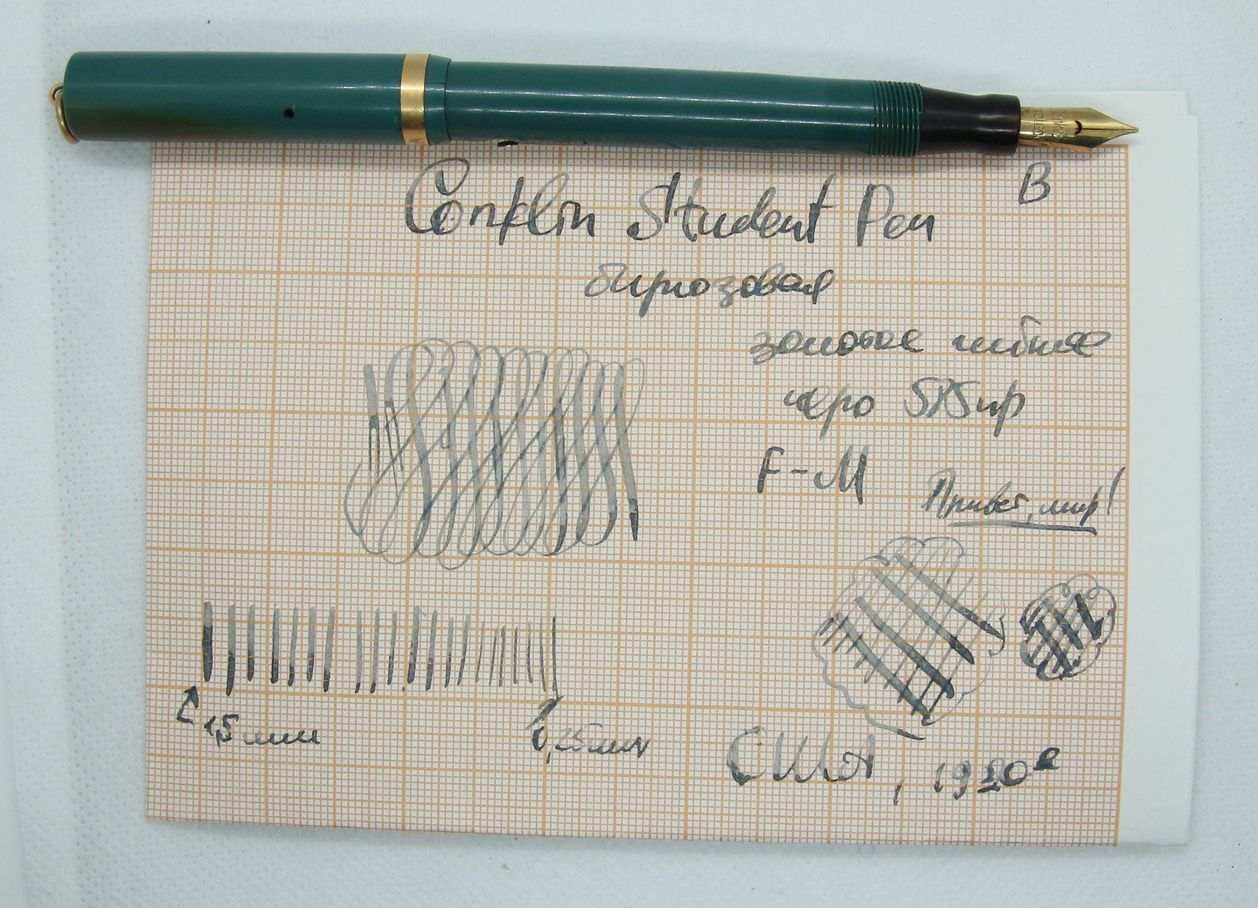 B
Conklin Student Pen
бирюзовая
золотое гибкое
перо 585пр
F-M
Привет, мир!
1,5 мм
0,25мм
США, 1920е